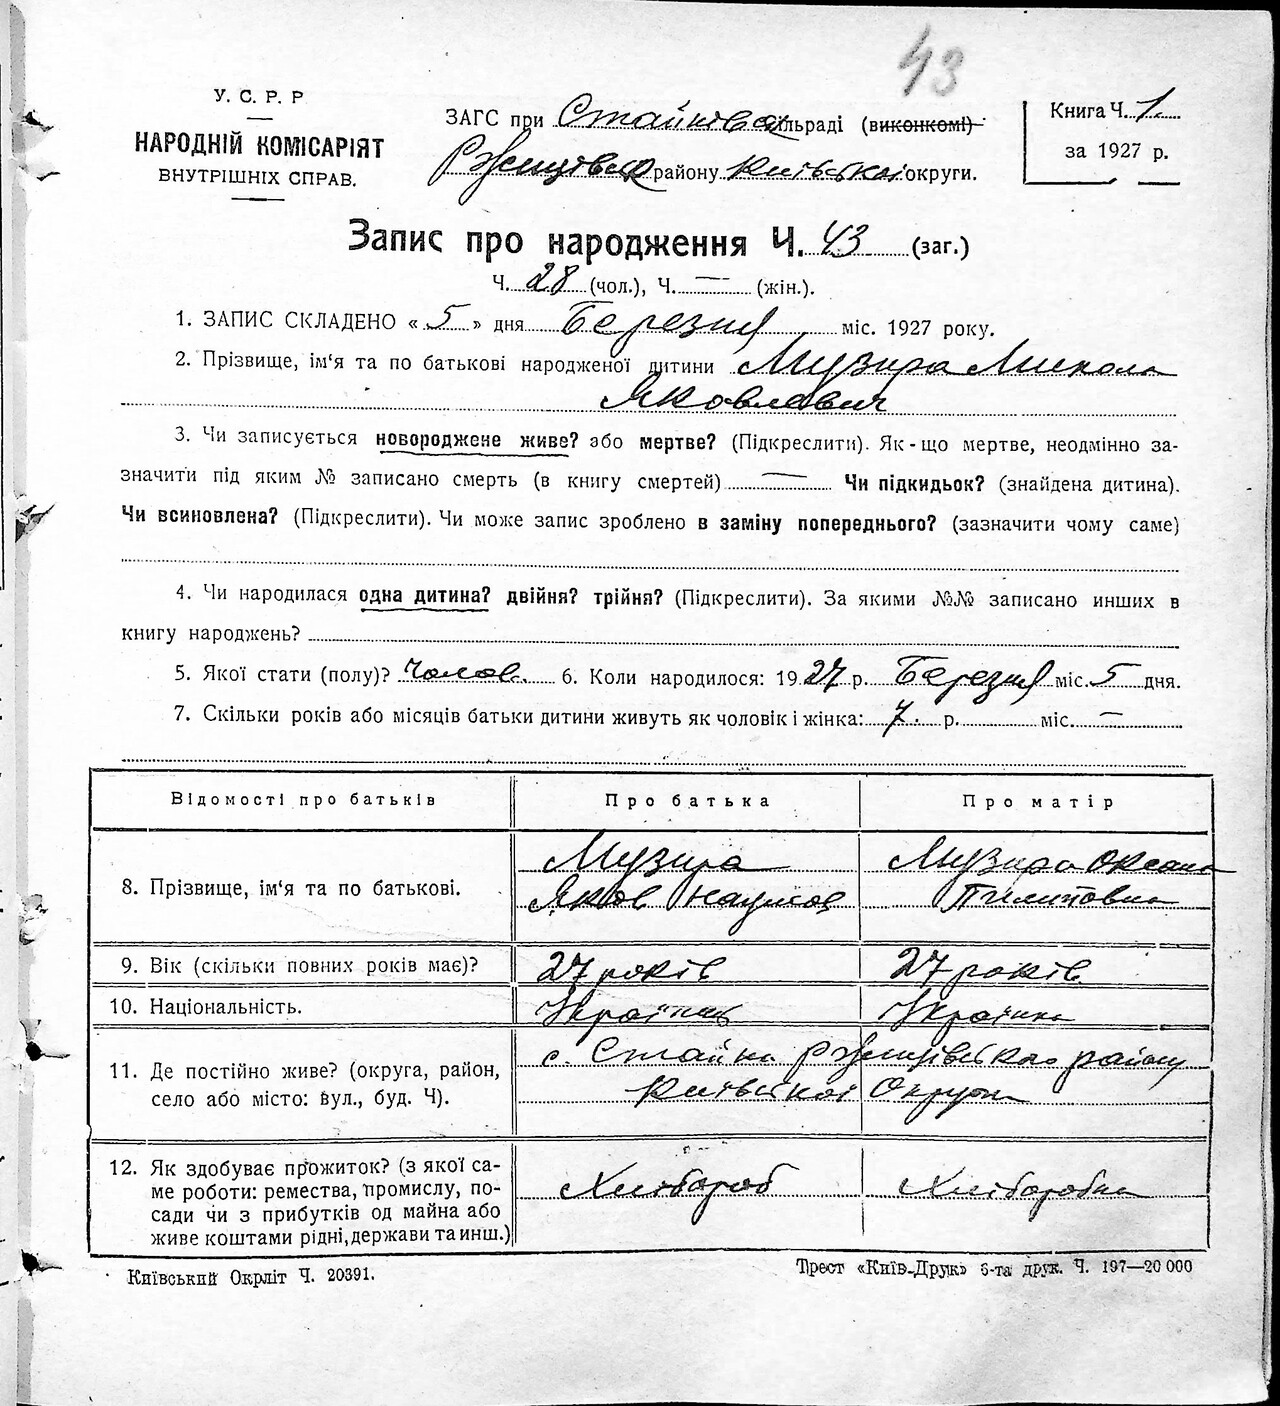 43
У. С. Р. Р
НАРОДНІЙ КОМІСАРІЯТ
ВНУТРІШНІХ СПРАВ.
ЗАГС при Стайківській сільраді (виконкомі)
Ржищівськ району Київської округи.
Книга Ч. 1.
за 1927 р.
Запис про народження Ч. 43 (заг.)
Ч. 28 (чол.), Ч. — (жін.).
1. ЗАПИС СКЛАДЕНО « 5 » дня Березня міс. 1927 року.
2. Прізвище, ім‘я та по батькові народженої дитини Музира Микола
Яковлевич
3. Чи записується новороджене живе? або мертве? (Підкреслити). Як-що мертве, неодмінно за-
значити під яким № записано смерть (в книгу смертей) — Чи підкидьок? (знайдена дитина).
Чи всиновлена? (Підкреслити). Чи може запис зроблено в заміну попереднього? (зазначити чому саме)
4. Чи народилася одна дитина? двійня? трійня? (Підкреслити). За якими №№ записано инших в
книгу народжень?
5. Якої стати (полу)? Чолов. 6. Коли народилося: 1927 р. Березня міс. 5 дня.
7. Скільки років або місяців батьки дитини живуть як чоловік і жінка: 7. р. міс. —
Відомості про батьків Про батька Про матір
8. Прізвище, ім‘я та по батькові. Музира Музира Оксана
Яков Наумов Пилиповна
9. Вік (скільки повних років має)? 27 років 27 років
10. Національність. Українец Українка
11. Де постійно живе? (округа, район, с. Стайки Ржищівського району
село або місто: вул., буд. Ч). Київської Округи
12. Як здобуває прожиток? (з якої са-
ме роботи: ремества, промислу, по- Хлібороб Хліборобка
сади чи з прибутків од майна або
живе коштами рідні, держави та инш.)
Київський Окрліт Ч. 20391.
Трест «Київ-Друк» 6-та друк. Ч. 197—20 000